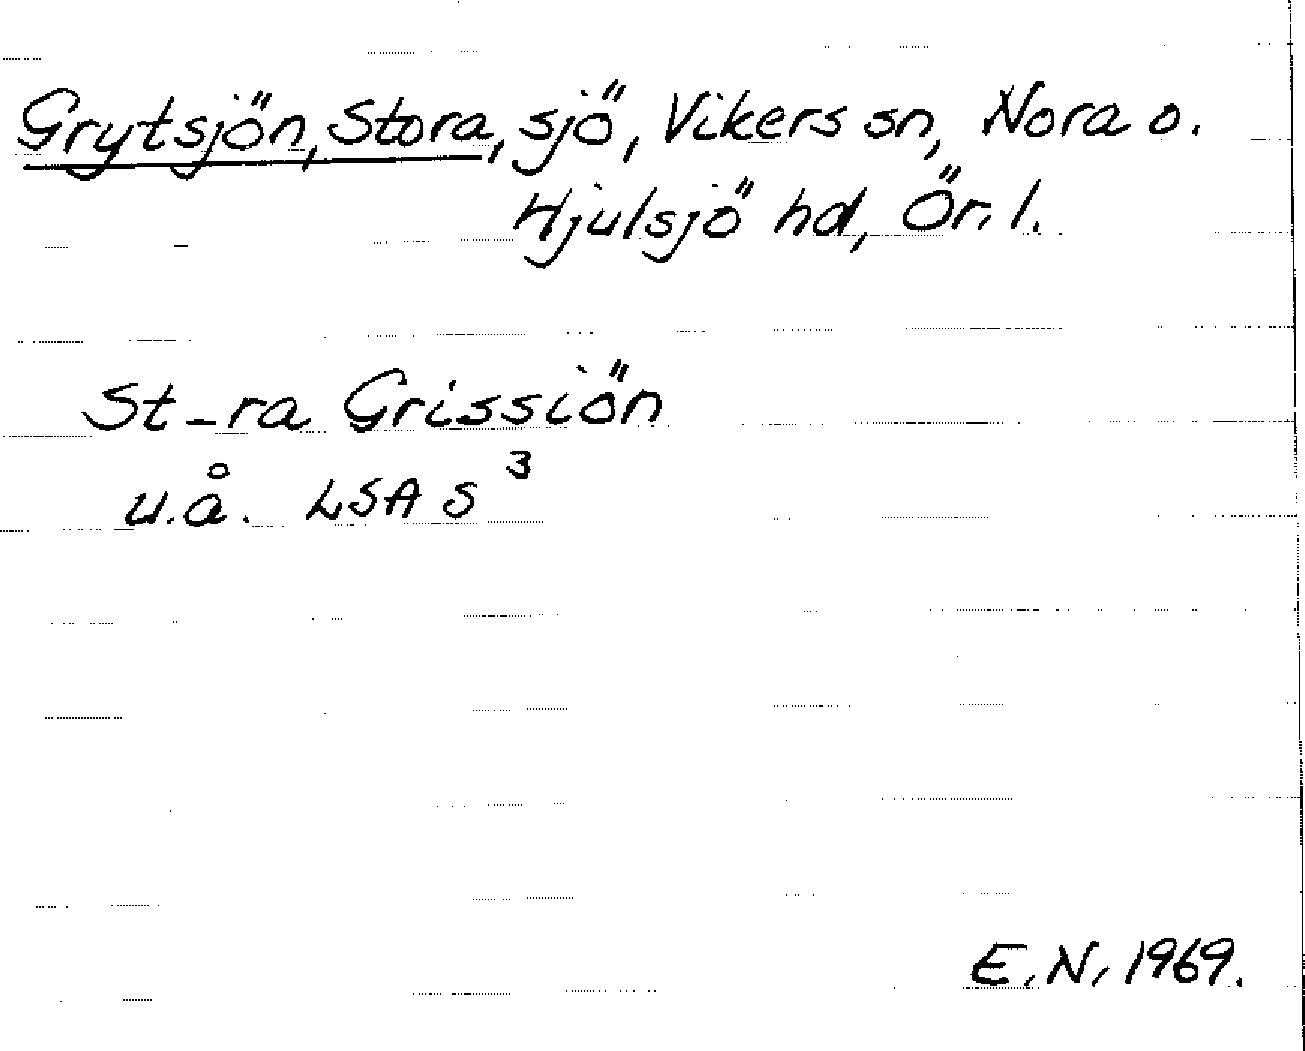 Grytsjön, Stora, sjö, Vikers sn, Nora o.
Hjulsjö hd, Ör. l.
St-ra Grissiön
u.å. LSA S 3
E.N. 1969.